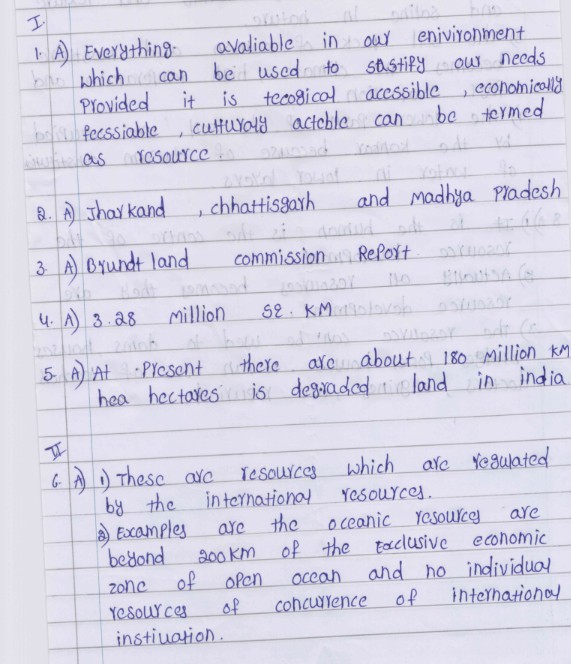 I.
1. A) Everything avaliable in our enivironment
which can be used to sastify our needs
Provided it is tecogical accssible , economically
fecssiable , cutturaly acteble can be termed
as rosource
2. A) Jharkand , chhattisgarh and Madhya Pradesh
3 A) Brundt land commission Report
4. A) 3.28 Million SQ. KM
5. A) At Present there are about 180 Million KM
hea hectares is degraded land in india
II
6. A) 1) These are resources which are regulated
by the international resources.
2) Examples are the oceanic resources are
beyond 200KM of the Exclusive economic
zone of open ocean and no individual
resources of concurrence of international
instiuation.